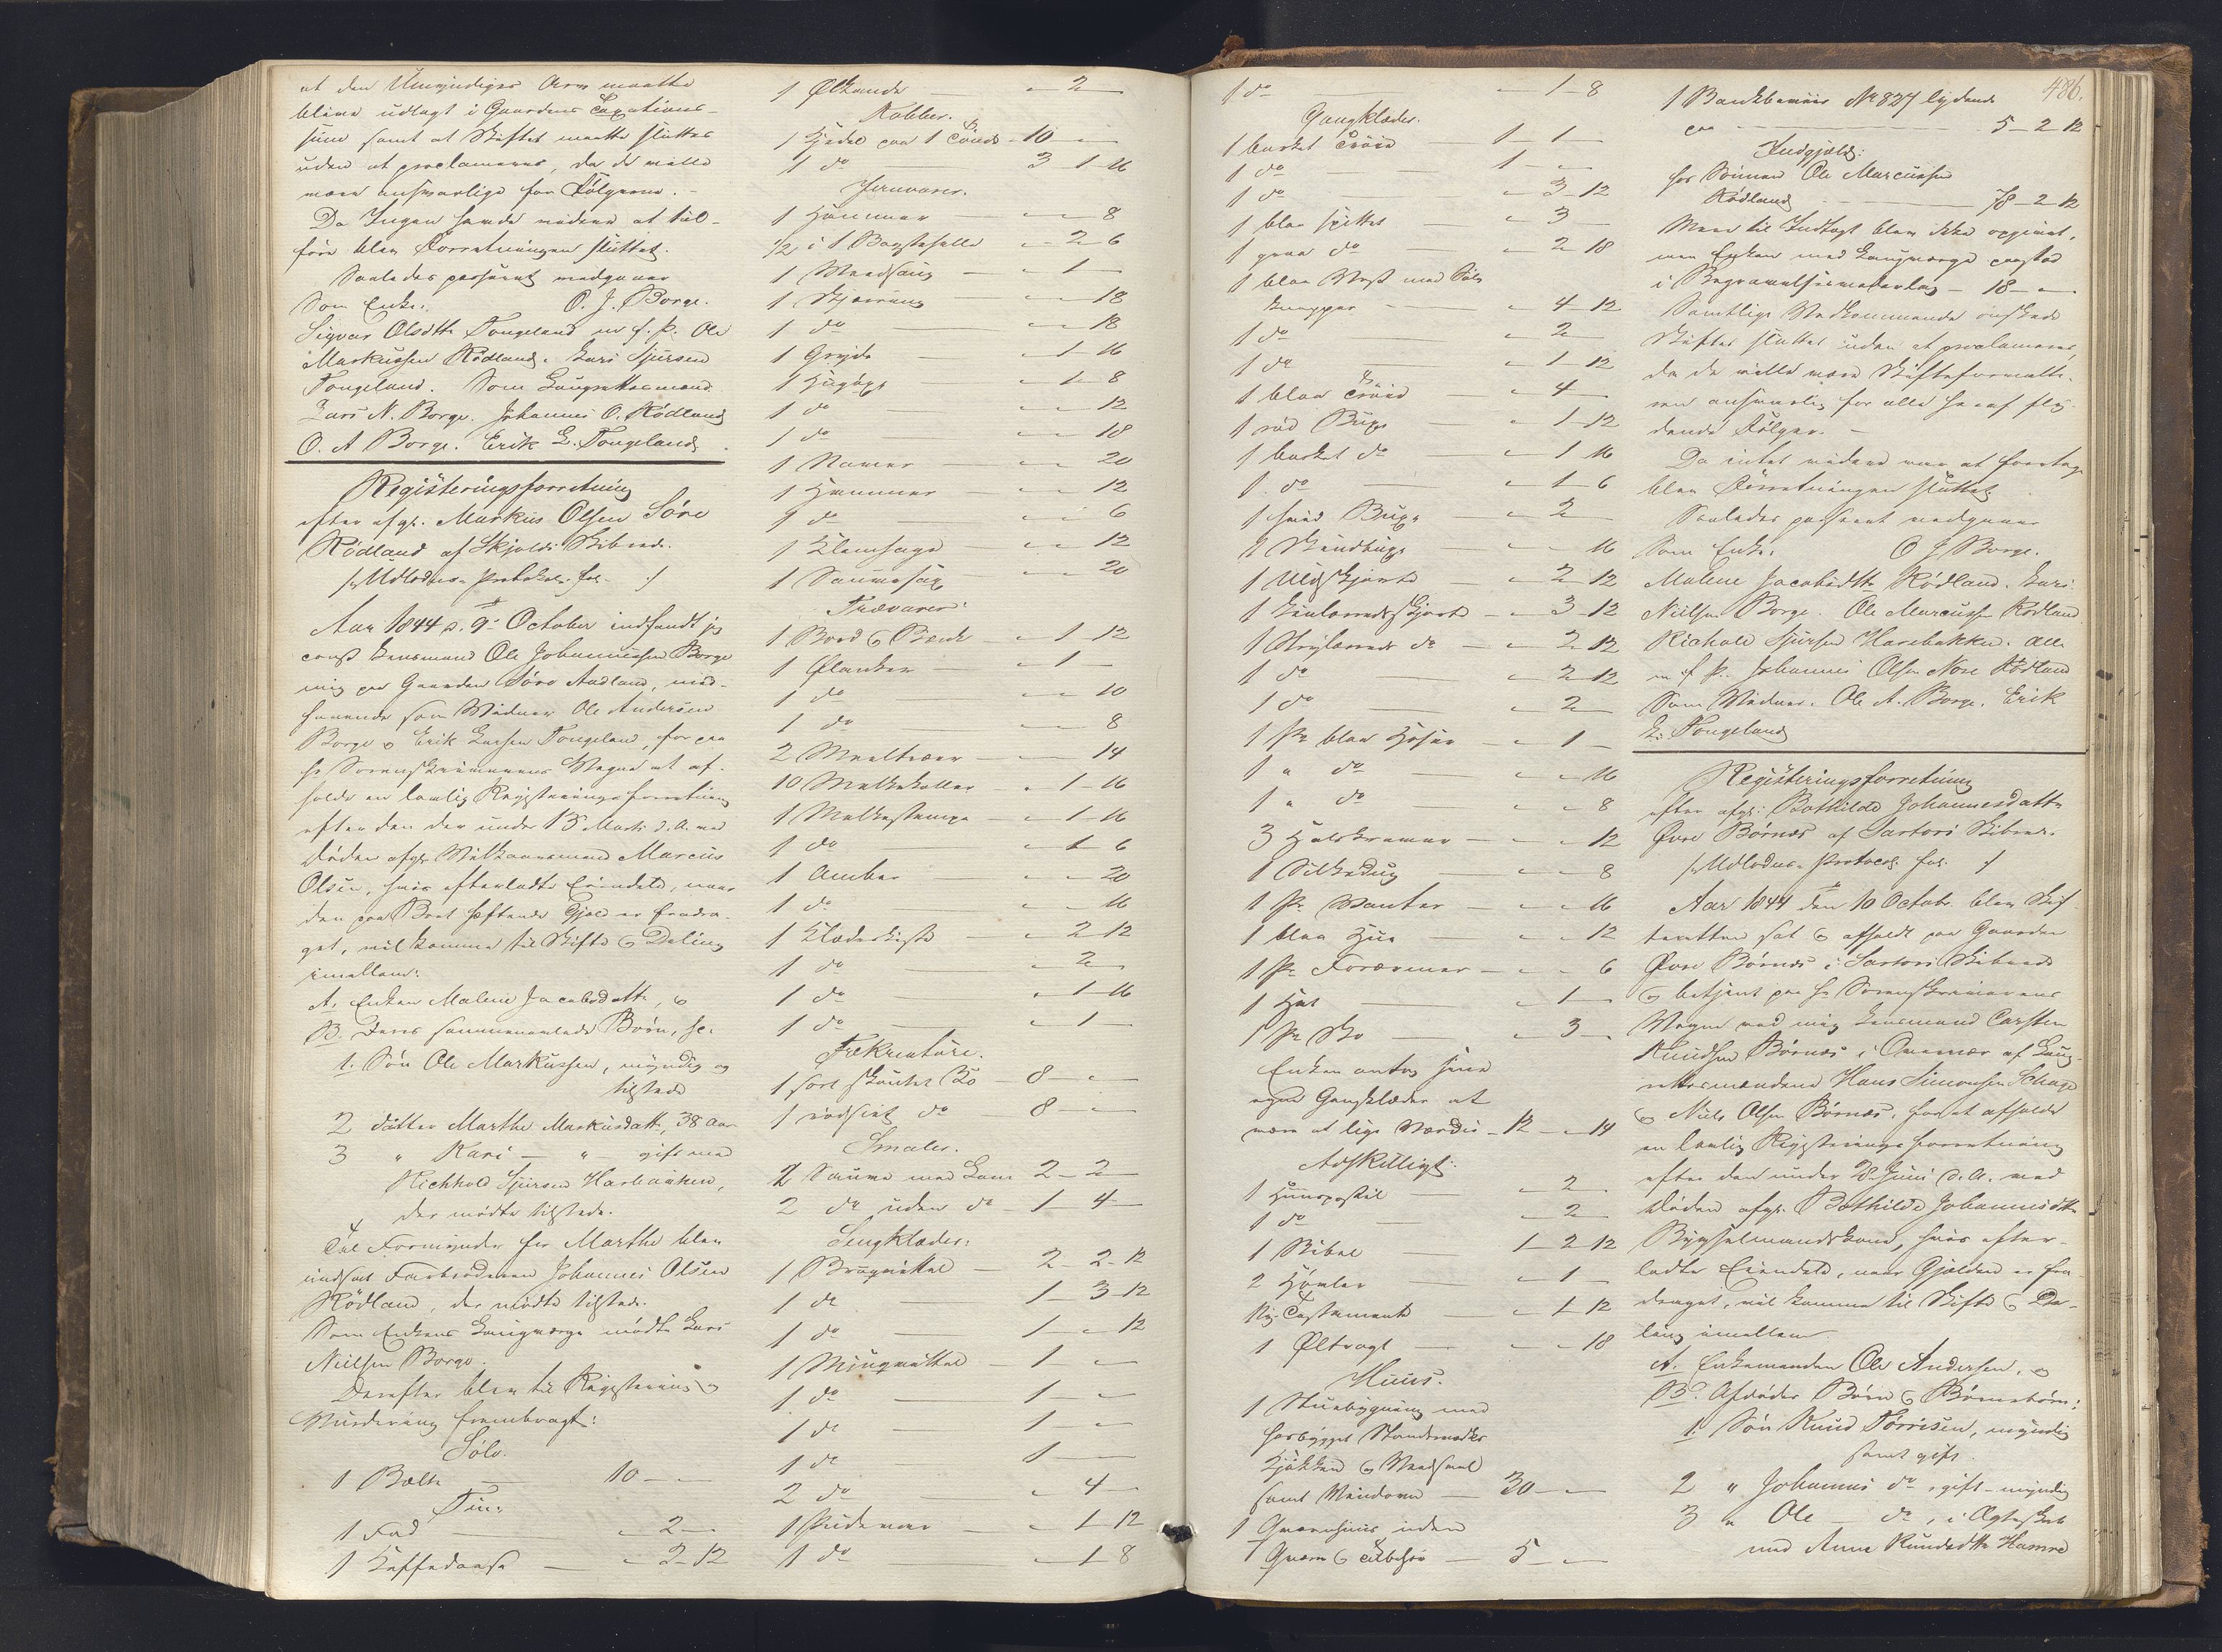 at den Umyndiges Arv maatte
blive udlagt i Gaardens Taxations-
sum samt at Skiftet maatte sluttes
uden at proclameres, da de ville
være ansvarlige for Følgerne.-
Da Ingen havde videre at til-
føre blev Forretningen sluttet.
Saaledes passeret vedgaaer
Som Enke: O. J. Borge.
Sigvor Olsdtr Tongeland m f. P. Ole
Markussen Rödland. Lars Sjursen
Tongeland. Som Laugrettesmænd
Lars N. Borge. Johannes O. Rödland
O. A Borge. Erik L. Tongeland

Registeringsforretning
efter afg. Markus Olsen Söre
Rödland af Skjolds Skibrede.
/: Udlodns. Protokol. fol. :/
Aar 1844 d. 9 October indfandt jeg
const Lensmand Ole Johannessen Borge
mig paa Gaarden Söre Rødland, med-
havende som Vidner Ole Andersen
Borge & Erik Larsen Tongeland, for paa
Hr Sorenskriverens Vegne at af-
holde en lovlig Registeringsforretning
efter den der under 13 Marts d. A. ved
Döden afg. Vilkaarsmand Marcus
Olsen, hvis efterladte Eiendele, naar
den paa Boet heftende Gjeld er fradra-
get, vil komme til Skifte & Deling
imellem:
A. Enken Malene Jacobsdatte, &
B. Deres sammenavlede Börn, se.
1. Sön Ole Markussen, myndig og
tilstede
2 datter Marthe Markusdatt, 38 aar
3 " Kari — " — gift med
Richhold Sjursen Harbakken,
der mödte tilstede.
Til Formynder for Marthe blev
indsat Farbroderen Johannes Olsen
Rödland, der mödte tilstede.
Som Enkens Laugværge mödte Lars
Nielsen Borge.
Derefter blev til Registering &
Vurdering frembragt:
Sölv.
1 Belte — 10 — "
Tin:
1 Fad — " 2 —
1 Kaffekande — " 2-12

1 Ölkande — " 2 —
Kobber.
1 Kjedel paa 1 Tönde - 10 — "
1 do — 3 - 1-16
Jernvarer.
1 Hammer — " " 8
1/2 i 1 Bagstehelle — " 2-6
1 Vedsaug — " 1 —
1 Skjæring — " " 18
1 do — " " 18
1 Gryde — " 1-16
1 Hugöxe — " 1-8
1 do — " " 12
1 do — " " 18
1 Naver — " " 20
1 Hammer — " " 12
1 do — " " 6
1 Klemsage — " " 12
1 Sauesax — " " 20
Trævarer:
1 Bord & Bænk — " 1-12
1 — " 1 —
1 do — " " 10
1 do — " " 8
2 — " " 14
10 Melkekoller " 1-16
1 Melkestampe — " 1-16
1 do — " 1 6
1 Ambar — " " 20
1 do — " " 16
1 Klædekiste — " 2-12
1 do — " 2 —
1 do — " 1-16
1 do — " 1 —
Fækreature.
1 sort skautet Ko — 8 — "
1 rödsiet do — 8 — "
Smaler.
2 Sauer med Lam 2-2 —
2 do uden do — 1-4 —
Sengklæder:
1 — 2-2-12
1 do — 1-3-12
1 do — 1-"-12
1 — 1 — "
1 do — 1 — "
1 do — 1 — "
1 do — 1 —
2 do — " 4 —
1 Pudevar — " 1-12
1 do — " 1 8

1 do — " 1-8
Gangklæder.
1 Tröie — 1-1 —
1 do — 1 - "
1 do — " 3-12
1 blaa — " 3 —
1 graa do — " 2-18
1 blaa Vest med Sölv
knapper — " 4-12
1 do — " 2 —
1 do — " 1-12
1 blaa Tröie — " 4 —
1 Buxe — " 1-12
1 do — " 1 16
1 do — " 1-6
1 hvid Buxe — " 2 —
1 Skindbuxe — " " 16
1 Uldskjorte — " 2-12
1 Linlærredsskjorte — " 3-12
1 Strilærreds do — " 2 12
1 do — " 2-12
1 do — " 2 —
1 Pr blaa Hoser — " 1 —
1 " do — " " 16
1 " do — " " 8
3 — " " 12
1 Silkedug — " " 8
1 Pr Vanter — " " 16
1 blaa Hue — " " 12
1 Pr Forærmer — " " 6
1 Hat — " 1 —
1 Pr Sko — " 3 —
Enken antog sine
egne Gangklæder at
være at lige Værdie - 12 - " - 14
Adskilligt:
1 Huuspostil — " 2 —
1 do — " 2 —
1 Bibel — 1-2-12
2 — " 1 —
Ny Testamente — " 1-12
1 Öltragt — " " 18
Huus.
1 Stuebygning med
Kjökken &
samt — 30 — "
1 Qværnhuus uden
1 Qværn & — 5 — "

486.
1 Bankbeviis No 827 lydende
paa — 5-2 12
Indgjæld:
hos Sönnen Ole Marcussen
Rödland — 78-2 12
Mere til Indtægt blev ikke opgivet,
men Enken med Laugværge paastod
i — 18 — "
Samtlige Vedkommende önskede
Skiftet sluttet uden at proclameres,
da de ville være Skifteforvalte-
ren ansvarlig for alle heraf fly-
dende Fölger. —
Da intet videre var at foretage
blev Forretningen sluttet.
Saaledes passeret vedgaaer
Som Enke: O J Borge.
Malene Jacobsdtr Rödland. Lars
Nielsen Borge. Ole Marcussen Rödland
Richold Sjursen Harebakken. alle
m f P. Johannes Olsen Rödland
Som Vidner. Ole A. Borge. Erik
L. Tongeland

Registeringsforretning
efter afg. Bothilde Johannesdatte
Övre Börnes af Sartors Skibrede
/: Udlodns. Protocol. fol. :/
Aar 1844 den 10 Octobr. blev Skif-
teretten sat & afholdt paa Gaarden
Övre Börnes i Sartors Skibrede
& betjent paa Hr Sorenskriverens
Vegne ved mig Lensmand Carsten
Knudsen Börnes i Overvær af Laug-
rettesmændene Hans Simonsen
& Niels Olsen Börnes, for at afholde
en lovlig Registeringsforretning
efter den under 28 Juni d. A. ved
Döden afg. Bothilde Johannesdtr
Bygselmandskone, hvis efter-
ladte Eiendele, naar Gjælden er fra-
draget, vil komme til Skifte & De-
ling imellem
A. Enkemanden Ole Andersen, &
B. Afdödes Börn & Börnebörn:
1. Sön Knud Törrisen, myndig
samt gift
2 " Johannes do, gift - myndig
3 " Ole — do, i Ægteskab
med Anne Knudsdtr Hamre